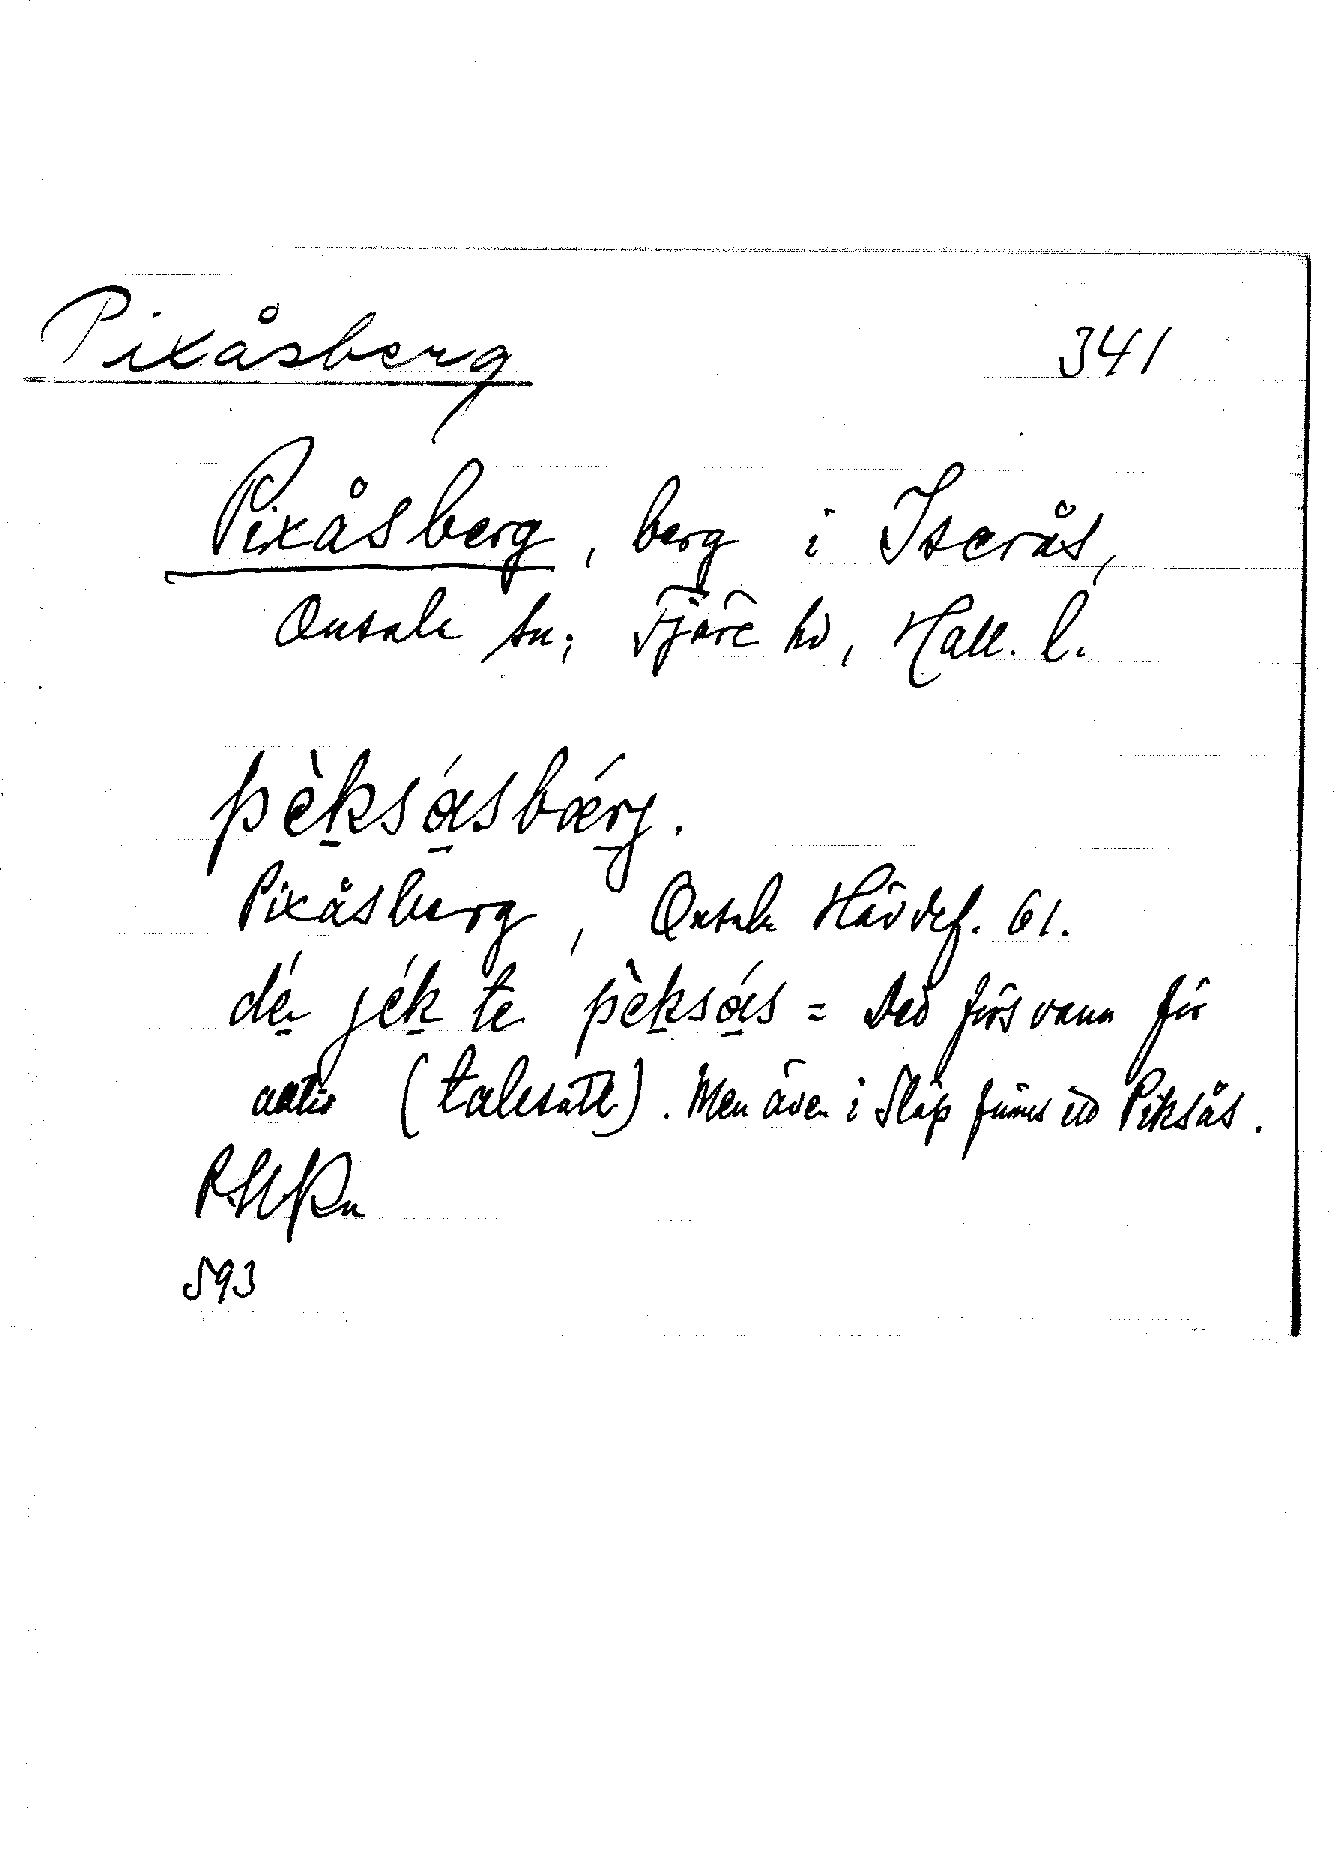 Pixåsberg 341
Pixåsberg, berg i Iserås,
Onsala sn; Fjäre hd, Hall. l.
pèksásbǽrj.
Pixåsberg, Onsala Hävdef. 61.
dé jék te pèksás = Det försvann för
alltid (talesätt). Men även i Släp finnes ett Piksås.
593